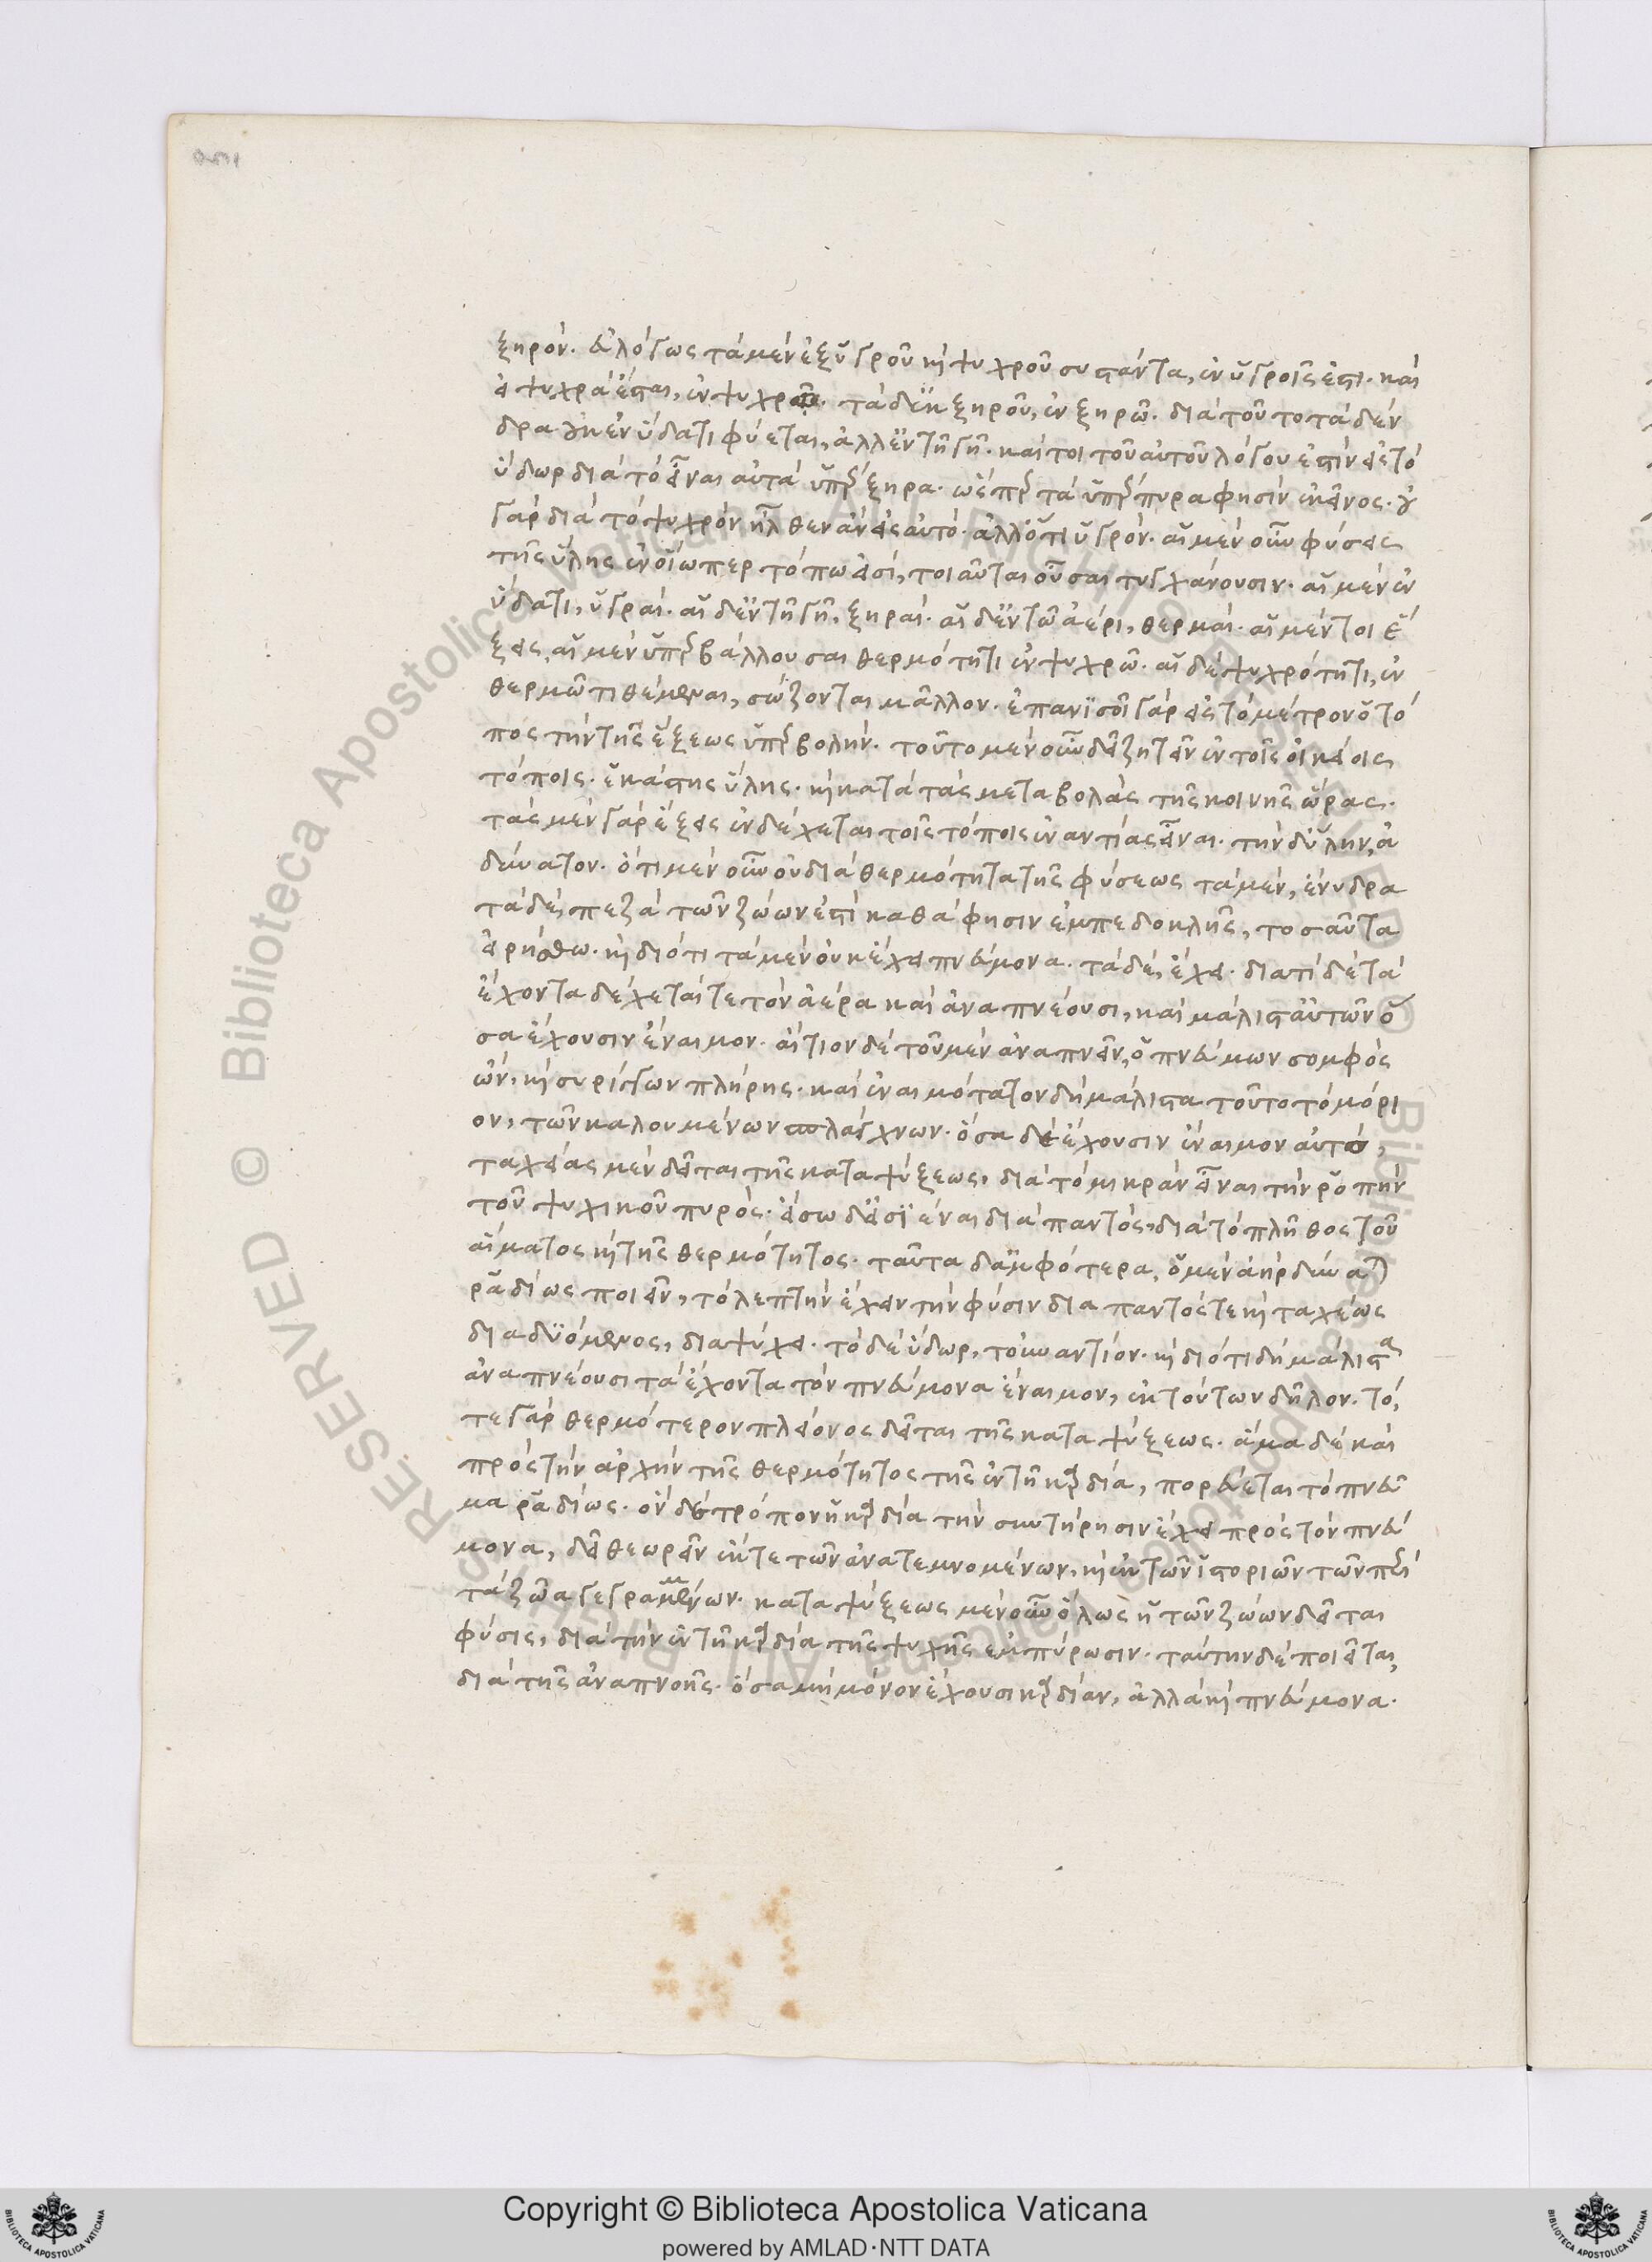 ξηρόν. εὐλόγως τὰ μὲν ἐξ ὑγροῦ κὶ ψυχροῦ συστάντα, ἐν ὑγροῖς ἐστι. καὶ
εἰ ψυχρὰ ἔσται, ἐν ψυχρῶ. τὰ δ' ἐκ ξηροῦ, ἐν ξηρῶ. διὰ τοῦτο τὰ δέν
δρα οὐκ ἐν ὕδατι φύεται, ἀλλ' ἐν τῆ γῆ. καί τοι τοῦ αὐτοῦ λόγου ἐστὶν εἰς τὸ
ὕδωρ διὰ τὸ εἶναι αὐτὰ ὑπὲρξηρα. ὥσπερ τὰ ὑπέρπυρα φησὶν ἐκεῖνος. οὐ
γὰρ διὰ τὸ ψυχρὸν ἦλθεν ἂν εἰς αὐτό. ἀλλ' ὅτι ὑγρόν. αἱ μὲν οὖν φύσεις
τῆς ὕλης ἐν οἵωπερ τόπω εἰσὶ, τοιαῦται οὖσαι τυγχάνουσιν. αἱ μὲν ἐν
ὕδατι, ὑγραί. αἱ δ' ἐν τῆ γῆ, ξηραί. αἱ δ' ἐν τῶ ἀέρι, θερμαί. αἱ μέντοι ἕ
ξεις, αἱ μὲν ὑπερβάλλουσαι θερμότητι ἐν ψυχρῶ. αἱ δὲ ψυχρότητι, ἐν
θερμῶ τιθέμεναι, σώζονται μᾶλλον. ἐπανισοῖ γὰρ εἰς τὸ μέτρον ὁ τό
πος τὴν τῆς ἕξεως ὑπερβολήν. τοῦτο μὲν οὖν δεῖ ζητεῖν ἐν τοῖς οἰκείοις
τόποις. ἑκάστης ὕλης. κὶ κατὰ τὰς μεταβολὰς τῆς κοινῆς ὥρας.
τὰς μὲν γὰρ ἕξεις ἐνδέχεται τοῖς τόποις ἐναντίας εἶναι. τὴν δ' ὕλην, ἀ
δύνατον. ὅτι μὲν οὖν οὐ διὰ θερμότητα τῆς φύσεως τὰ μὲν, ἔνυδρα
τὰ δὲ, πεζὰ τῶν ζώων ἐστὶ καθά φησιν ἐμπεδοκλῆς, τοσαῦτα
εἰρήσθω. κὶ διότι τὰ μὲν οὐκ ἔχει πνεύμονα. τὰ δὲ, ἔχει. διατί δὲ τὰ
ἔχοντα δέχεταί τε τὸν ἀέρα καὶ ἀναπνέουσι, καὶ μάλιστ' αὐτῶν ὅ
σα ἔχουσιν ἔναιμον. αἴτιον δὲ τοῦ μὲν ἀναπνεῖν, ὁ πνεύμων σομφὸς
ὢν, κὶ συρίγγων πλήρης. καὶ ἐναιμότατον δὴ μάλιστα τοῦτο τὸ μόρι
ον, τῶν καλουμένων σπλάγχνων. ὅσα δὲ ἔχουσιν ἔναιμον αὐτὸ,
ταχείας μὲν δεῖται τῆς καταψύξεως, διὰ τὸ μικρὰν εἶναι τὴν ῥοπὴν
τοῦ ψυχικοῦ πυρός. εἴσω δ' εἰσϊέναι διὰ παντὸς, διὰ τὸ πλῆθος τοῦ
αἵματος κὶ τῆς θερμότητος. ταῦτα δ' ἀμφότερα, ὁ μὲν ἀὴρ δύναται
ῥαδίως ποιεῖν, τὸ λεπτὴν ἔχειν τὴν φύσιν διαπαντός τε κὶ ταχέως
διαδυόμενος, διαψύχει. τὸ δὲ ὕδωρ, τοὐναντίον. κὶ διότι δὴ μάλιστα
ἀναπνέουσι τὰ ἔχοντα τὸν πνεύμονα ἔναιμον, ἐκ τούτων δῆλον. τό,
τε γὰρ θερμότερον πλείονος δεῖται τῆς καταψύξεως. ἅμα δὲ καὶ
πρὸς τὴν ἀρχὴν τῆς θερμότητος τῆς ἐν τῆ καρδία, πορεύεται τὸ πνεῦ
μα ῥαδίως. ὃν δὲ τρόπον ἡ καρδία τὴν συντήρησιν ἔχει πρὸς τὸν πνεύ
μονα, δεῖ θεωρεῖν ἔκ τε τῶν ἀνατεμνομένων, κὶ ἐκ τῶν ἱστοριῶν τῶν περὶ
τὰ ζῶα γεγραμμένων. καταψύξεως μὲν οὖν ὅλως ἡ τῶν ζώων δεῖται
φύσις, διὰ τὴν ἐν τῆ καρδία τῆς ψυχῆς ἐμπύρωσιν. ταύτην δὲ ποιεῖται,
διὰ τῆς ἀναπνοῆς. ὅσα μὴ μόνον ἔχουσι καρδίαν, ἀλλὰ κὶ πνεύμονα.
Copyright © Biblioteca Apostolica Vaticana
powered by AMLAD·NTT DATA